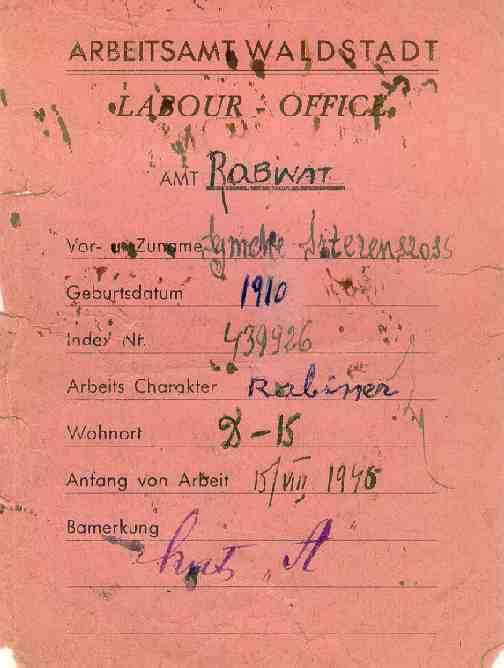 ARBEITSAMT WALDSTADT
LABOUR - OFFICE
AMT RABINAT
Vor- u. Zuname Symche Szterenszoss
Geburtsdatum 1910
Index Nr. 439926
Arbeits Charakter Rabiner
Wohnort D-15
Anfang von Arbeit 15/VIII 1946
Bamerkung
kat. "A"